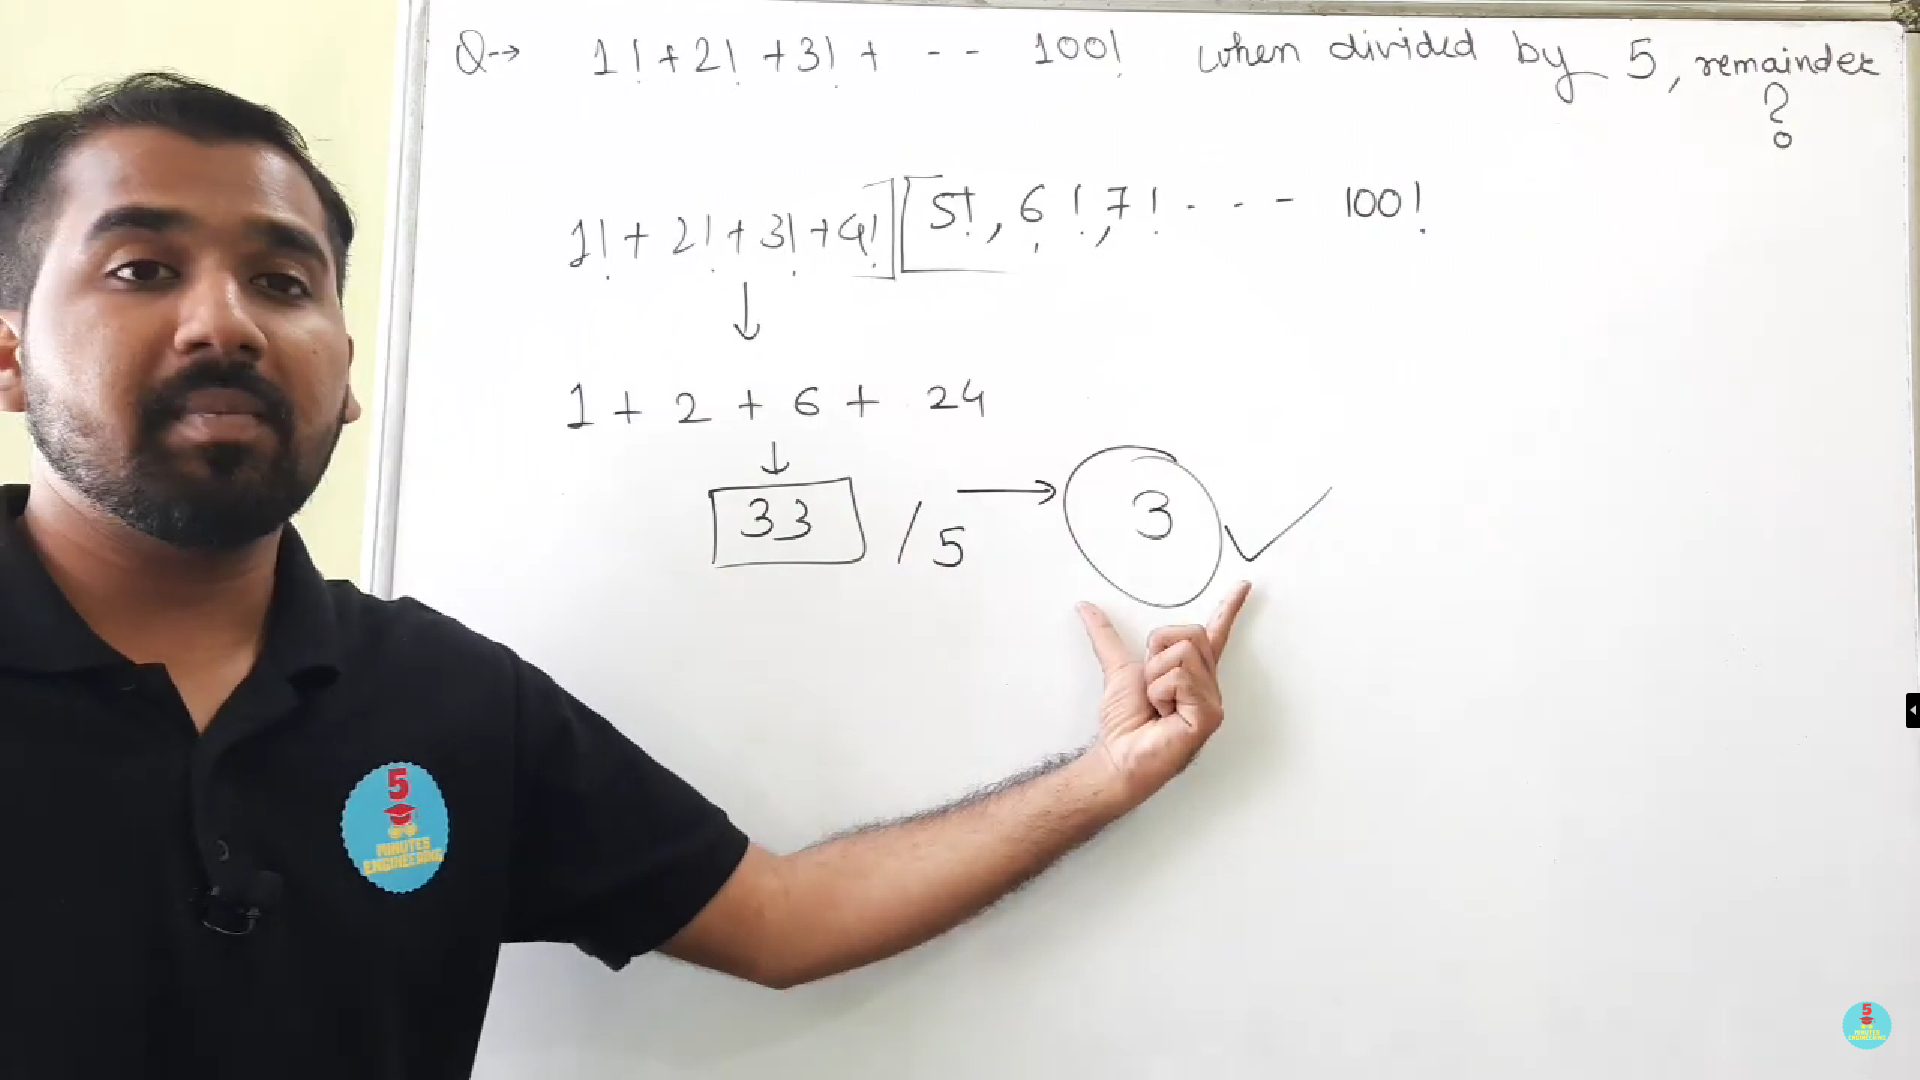 Q→ 1! + 2! + 3! + - - 100! when divided by 5, remainder
?
1! + 2! + 3! + 4! 5!, 6!, 7! - - - 100!
↓
1 + 2 + 6 + 24
↓
33 / 5 → 3 ✓
5
MINUTES
ENGINEERING
5
MINUTES
ENGINEERING